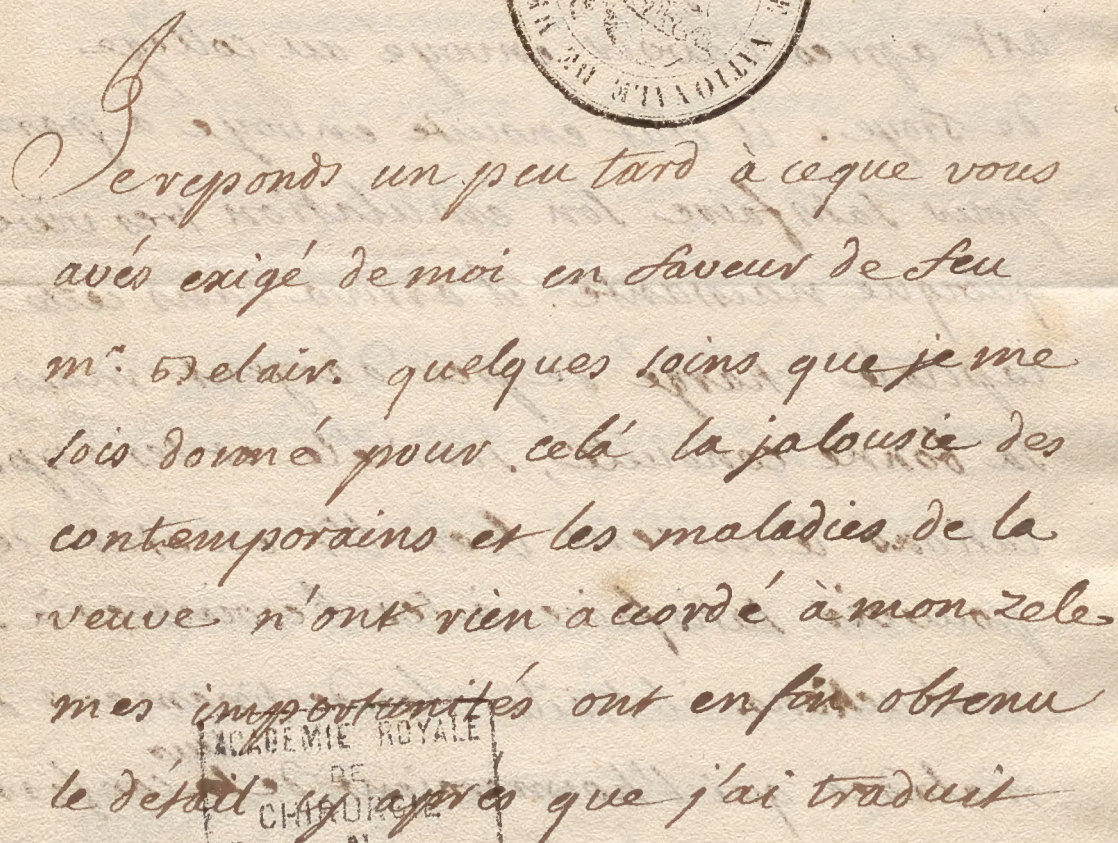 NATIONALE DE
Je reponds un peu tard à ceque vous
avés exigé de moi en faveur de feu
mr. Delair. quelques soins que je me
sois donné pour celá la jalousie des
contemporains et les maladies de la
veuve n'ont rien accordé à mon zele
mes importunités ont enfin obtenu
ACADEMIE ROYALE
DE
le détail cy aprés que j'ai traduit
CHIRURGIE